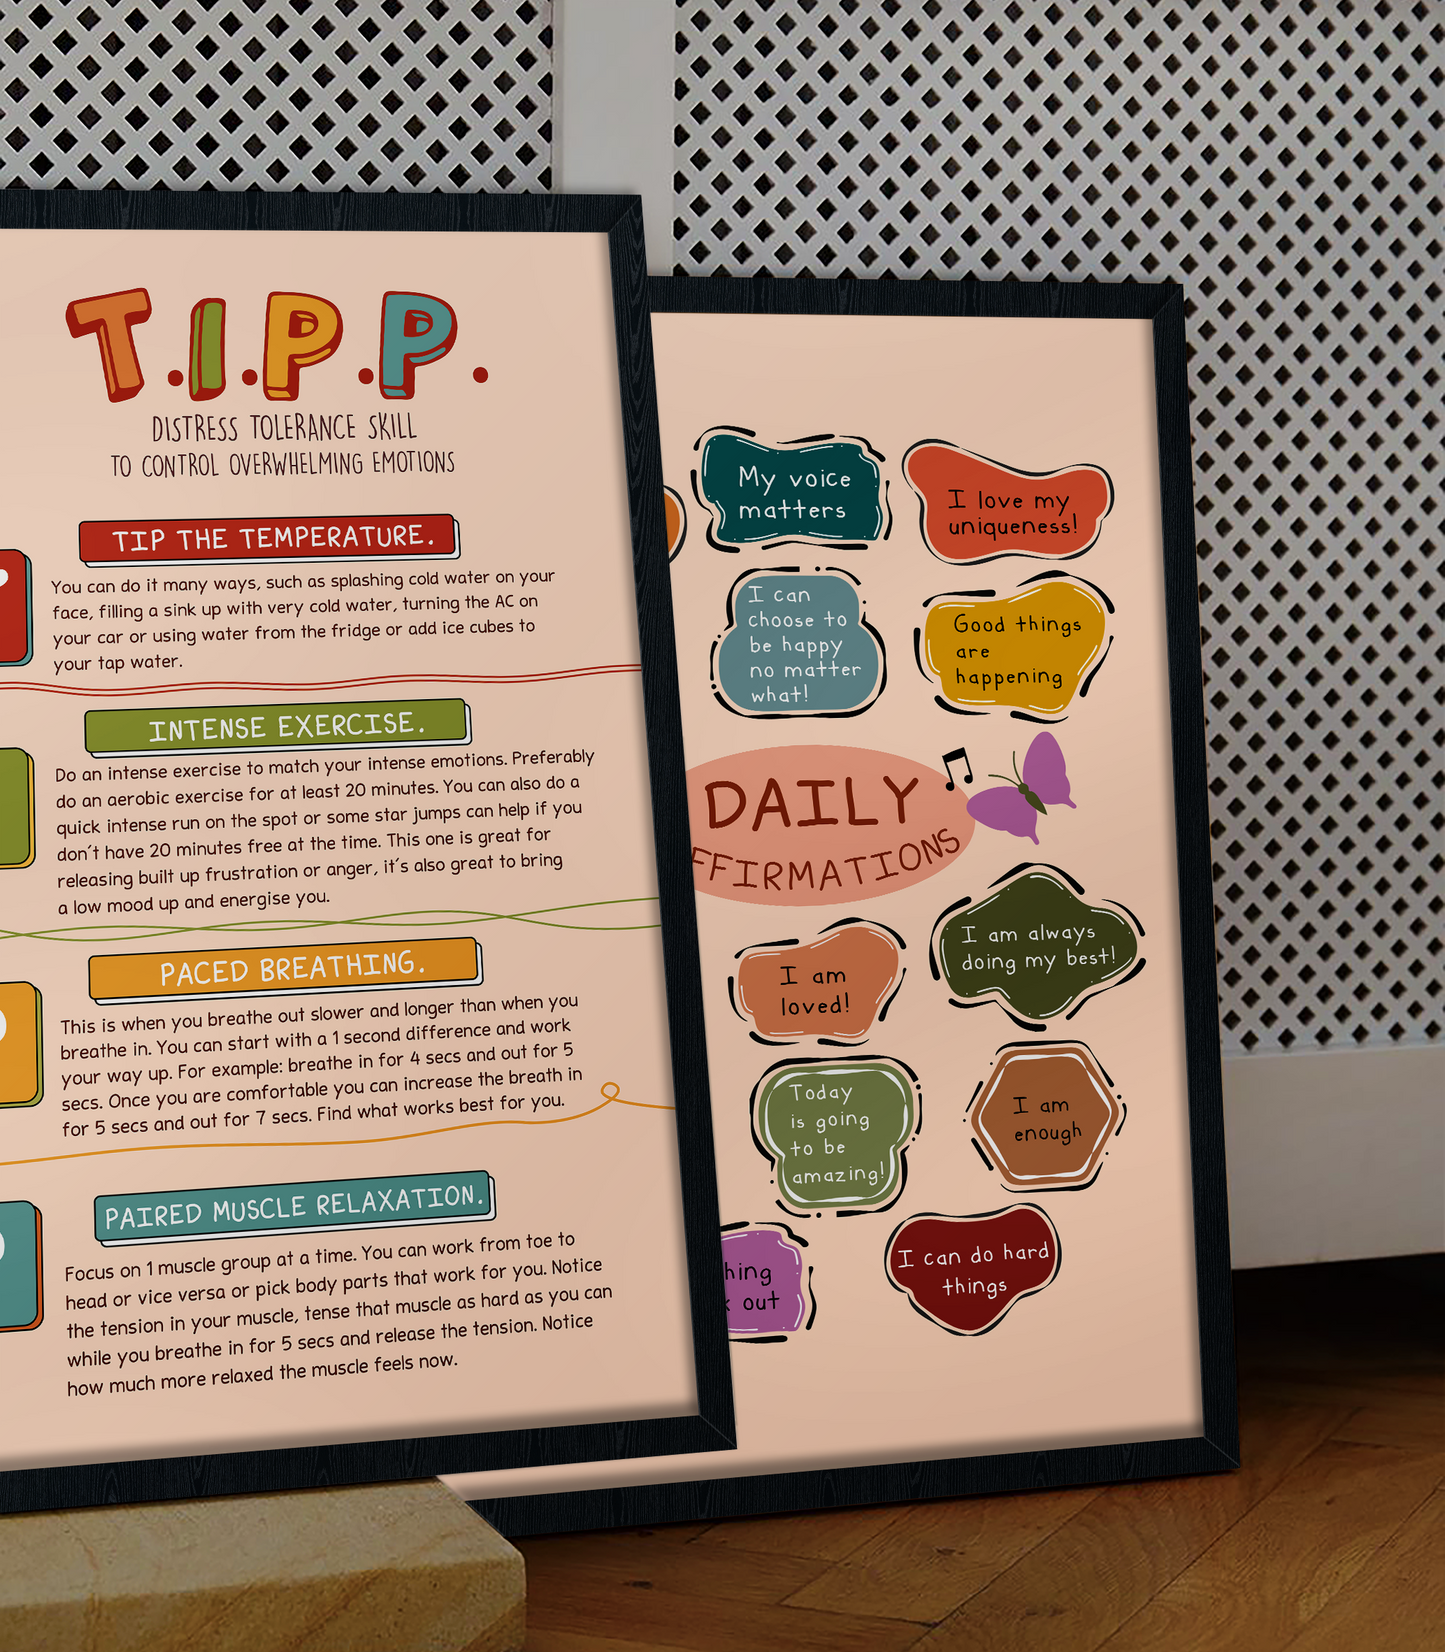 T.I.P.P.
DISTRESS TOLERANCE SKILL
TO CONTROL OVERWHELMING EMOTIONS
TIP THE TEMPERATURE.
You can do it many ways, such as splashing cold water on your
face, filling a sink up with very cold water, turning the AC on
your car or using water from the fridge or add ice cubes to
your tap water.
INTENSE EXERCISE.
Do an intense exercise to match your intense emotions. Preferably
do an aerobic exercise for at least 20 minutes. You can also do a
quick intense run on the spot or some star jumps can help if you
don't have 20 minutes free at the time. This one is great for
releasing built up frustration or anger, it's also great to bring
a low mood up and energise you.
PACED BREATHING.
This is when you breathe out slower and longer than when you
breathe in. You can start with a 1 second difference and work
your way up. For example: breathe in for 4 secs and out for 5
secs. Once you are comfortable you can increase the breath in
for 5 secs and out for 7 secs. Find what works best for you.
PAIRED MUSCLE RELAXATION.
Focus on 1 muscle group at a time. You can work from toe to
head or vice versa or pick body parts that work for you. Notice
the tension in your muscle, tense that muscle as hard as you can
while you breathe in for 5 secs and release the tension. Notice
how much more relaxed the muscle feels now.
My voice
matters
I love my
uniqueness!
I can
choose to
be happy
no matter
what!
Good things
are
happening
DAILY
FFIRMATIONS
I am
loved!
I am always
doing my best!
Today
is going
to be
amazing!
I am
enough
hing
out
I can do hard
things